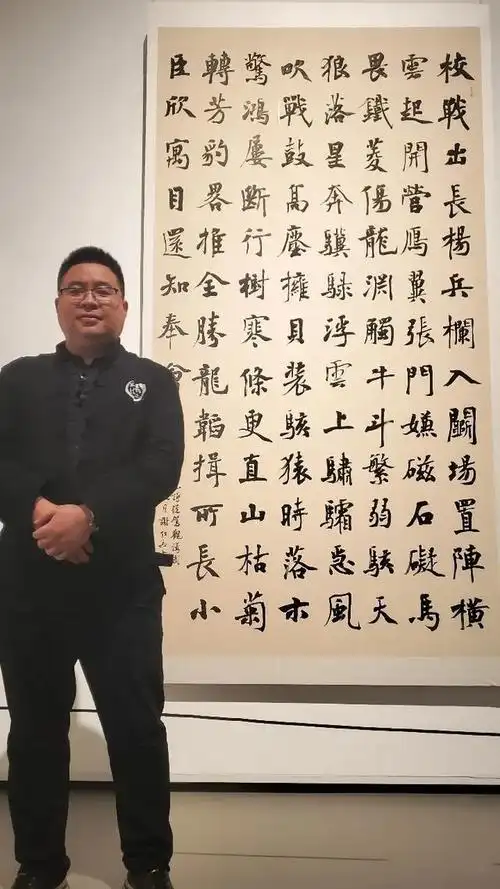 校戰出長楊兵欄入鬭場置陣橫
雲起開營鴈翼張門嫌磁石礙馬
畏鐵菱傷龍淵觸牛斗繁弱駭天
狼落星奔驥騄浮雲上驌驦急風
吹戰鼓高塵擁貝裝駭猿時落木
驚鴻屢斷行樹寒條更直山枯菊
轉芳豹畧推全勝龍韜揖所長小
臣欣寓目還知奉
從駕觀講武